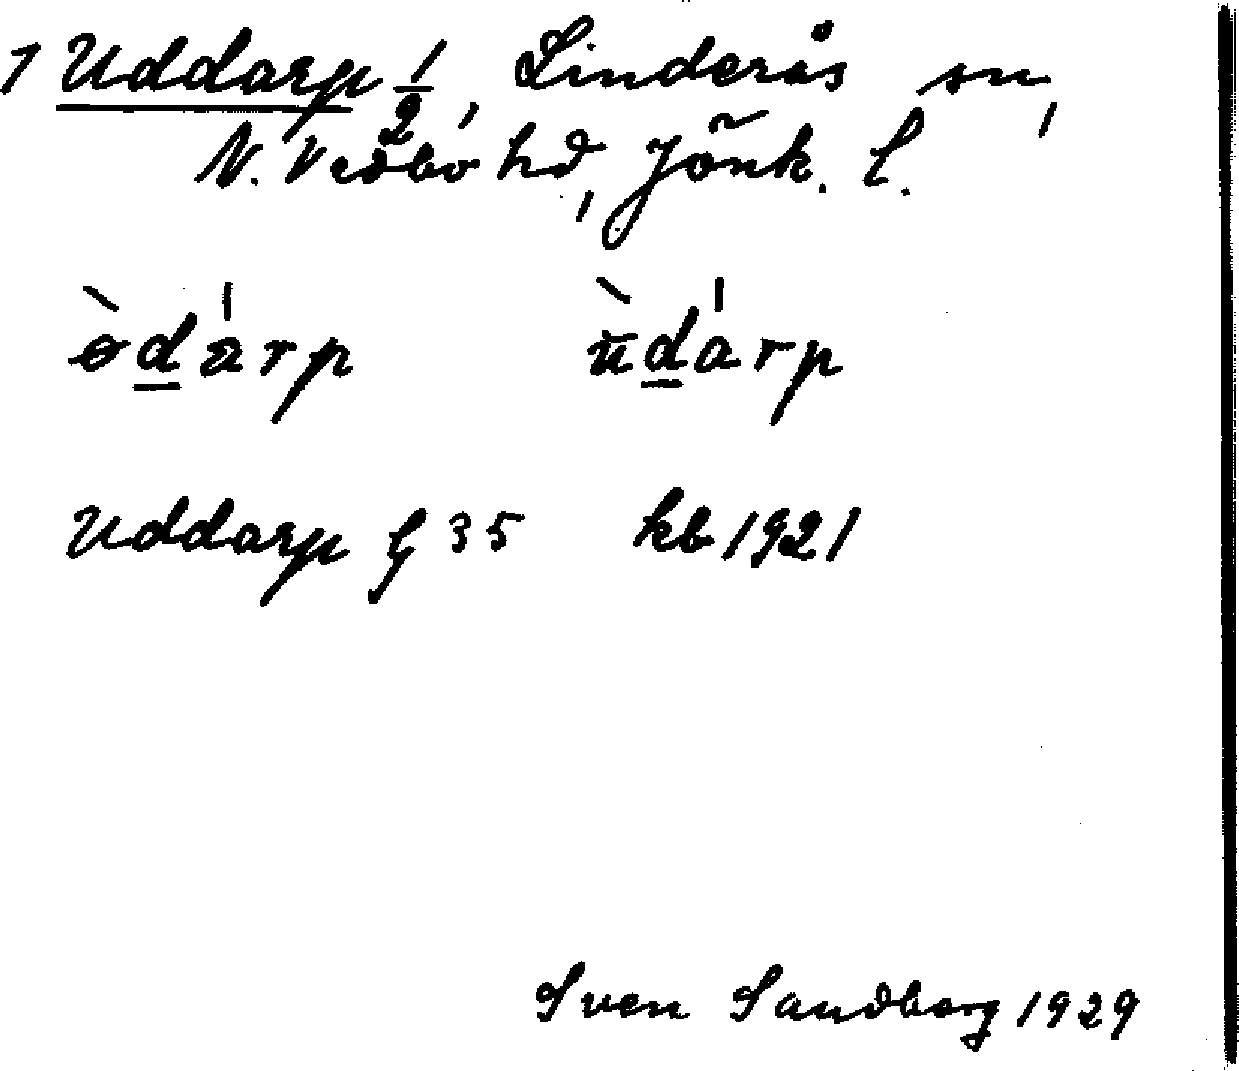 1 Uddarp 1/2, Linderås sn,
N. Vedbo hd, Jönk. l.
ɵ̀dárp ù̄dárp
Uddarp § 35 kb 1921
Sven Sandberg 1929